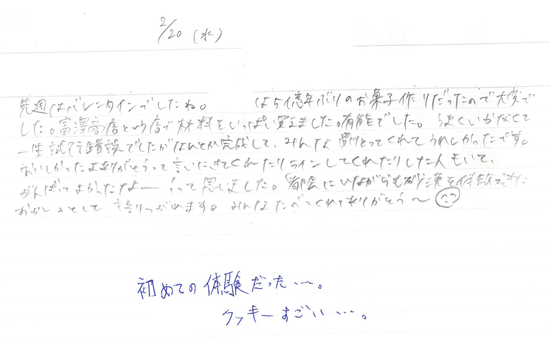 2/20 (水)
先週はバレンタインでしたね。 は5億年ぶりのお菓子作りだったので大変で
した。富澤商店という店で材料をいっぱい買えました。有能でした。うまくいかなくて
一生試行錯誤でしたがなんとか完成して、みんな受けとってくれてうれしかったです。
おいしかったよありがとうって言いにきてくれたりラインしてくれたりした人もいて、
がんばってよかったなー って思いました。都会にいながらも砂漠を体験できた
として語りつがれます。みんなたべてくれてありがとう〜
初めての体験だった…。
クッキーすごい…。